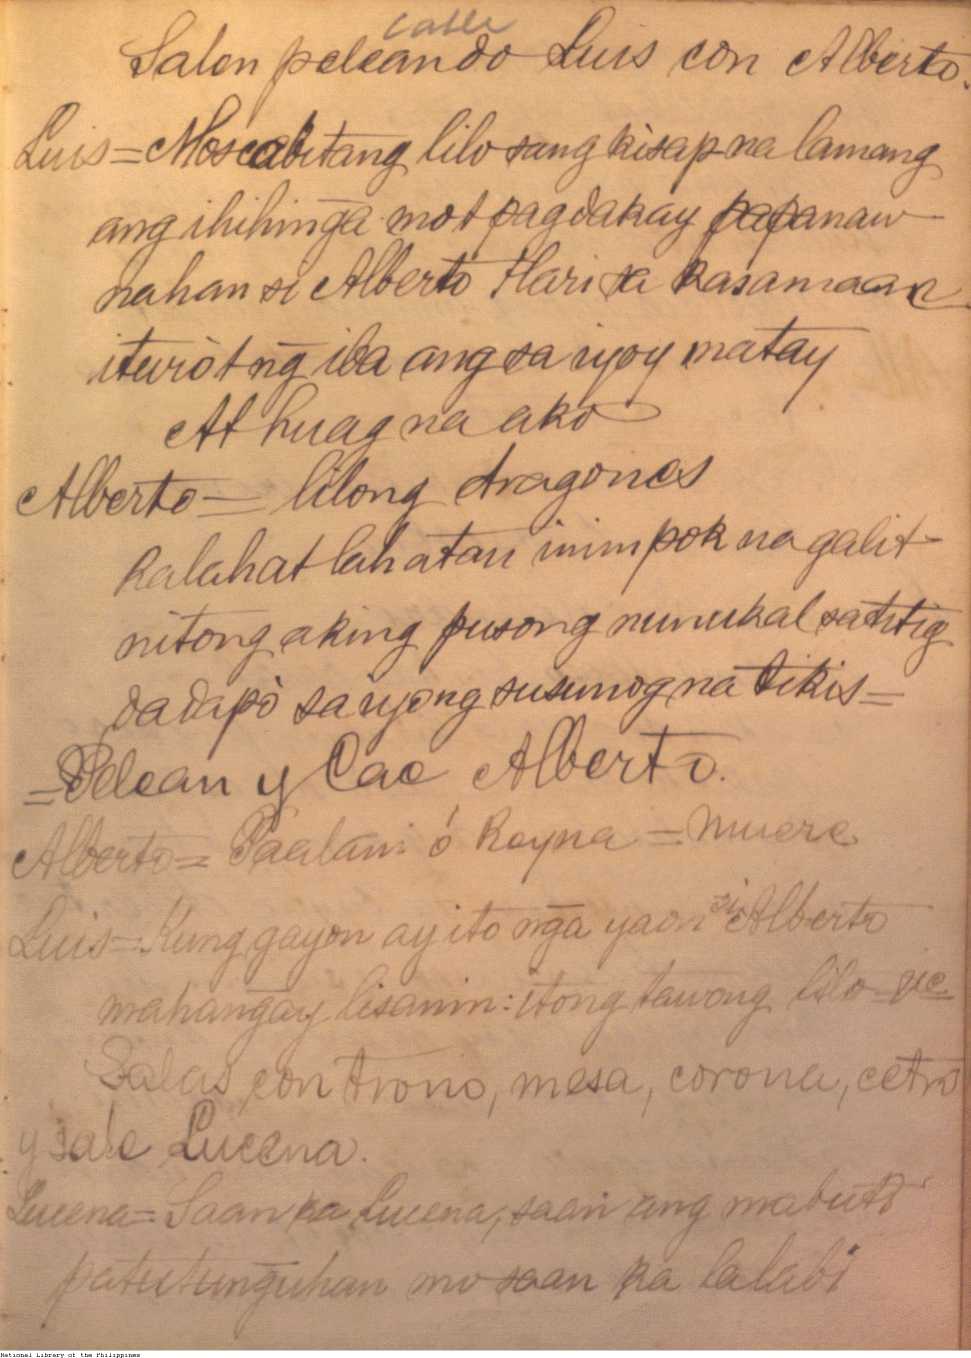 calle
Salon peleando Luis con Alberto.
Luis= Moscabitang lilo sang kisap na lamang
ang ihihinga mo't pagdakay papanaw
nahan si Alberto Hari sa kasamaan
ituro't ng iba ang sa iyoy matay
At huag na ako
Alberto= lilong dragones
kalahatlahatan inimpok na galit
nitong aking pusong nunukal sa titig
dadapo sa iyong susunog na tikis=
=Pelean y Cae Alberto.
Alberto= Paalam ó Reyna = muere
Luis= Kung gayon ay ito nga yaon si Alberto
mahangay lisanin: itong tawong lilo =
Salas con trono, mesa, corona, cetro
y sale Lucena.
Lucena= Saan ka Lucena, saan ang mabuti
patutunguhan mo saan ka lalabi
National Library of the Philippines